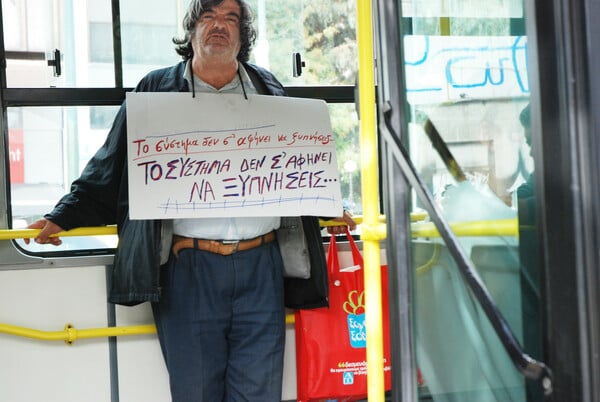 Το σύστημα δεν σ' αφήνει να ξυπνήσεις
ΤΟ ΣΥΣΤΗΜΑ ΔΕΝ Σ' ΑΦΗΝΕΙ
ΝΑ ΞΥΠΝΗΣΕΙΣ...